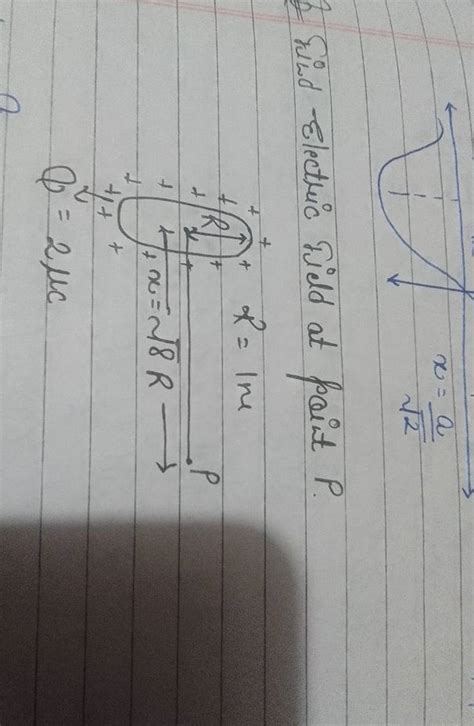 x = a/√2
Q= Find Electric Field at point P.
R = 1m
R
P
x = √8 R
Q = 2μC